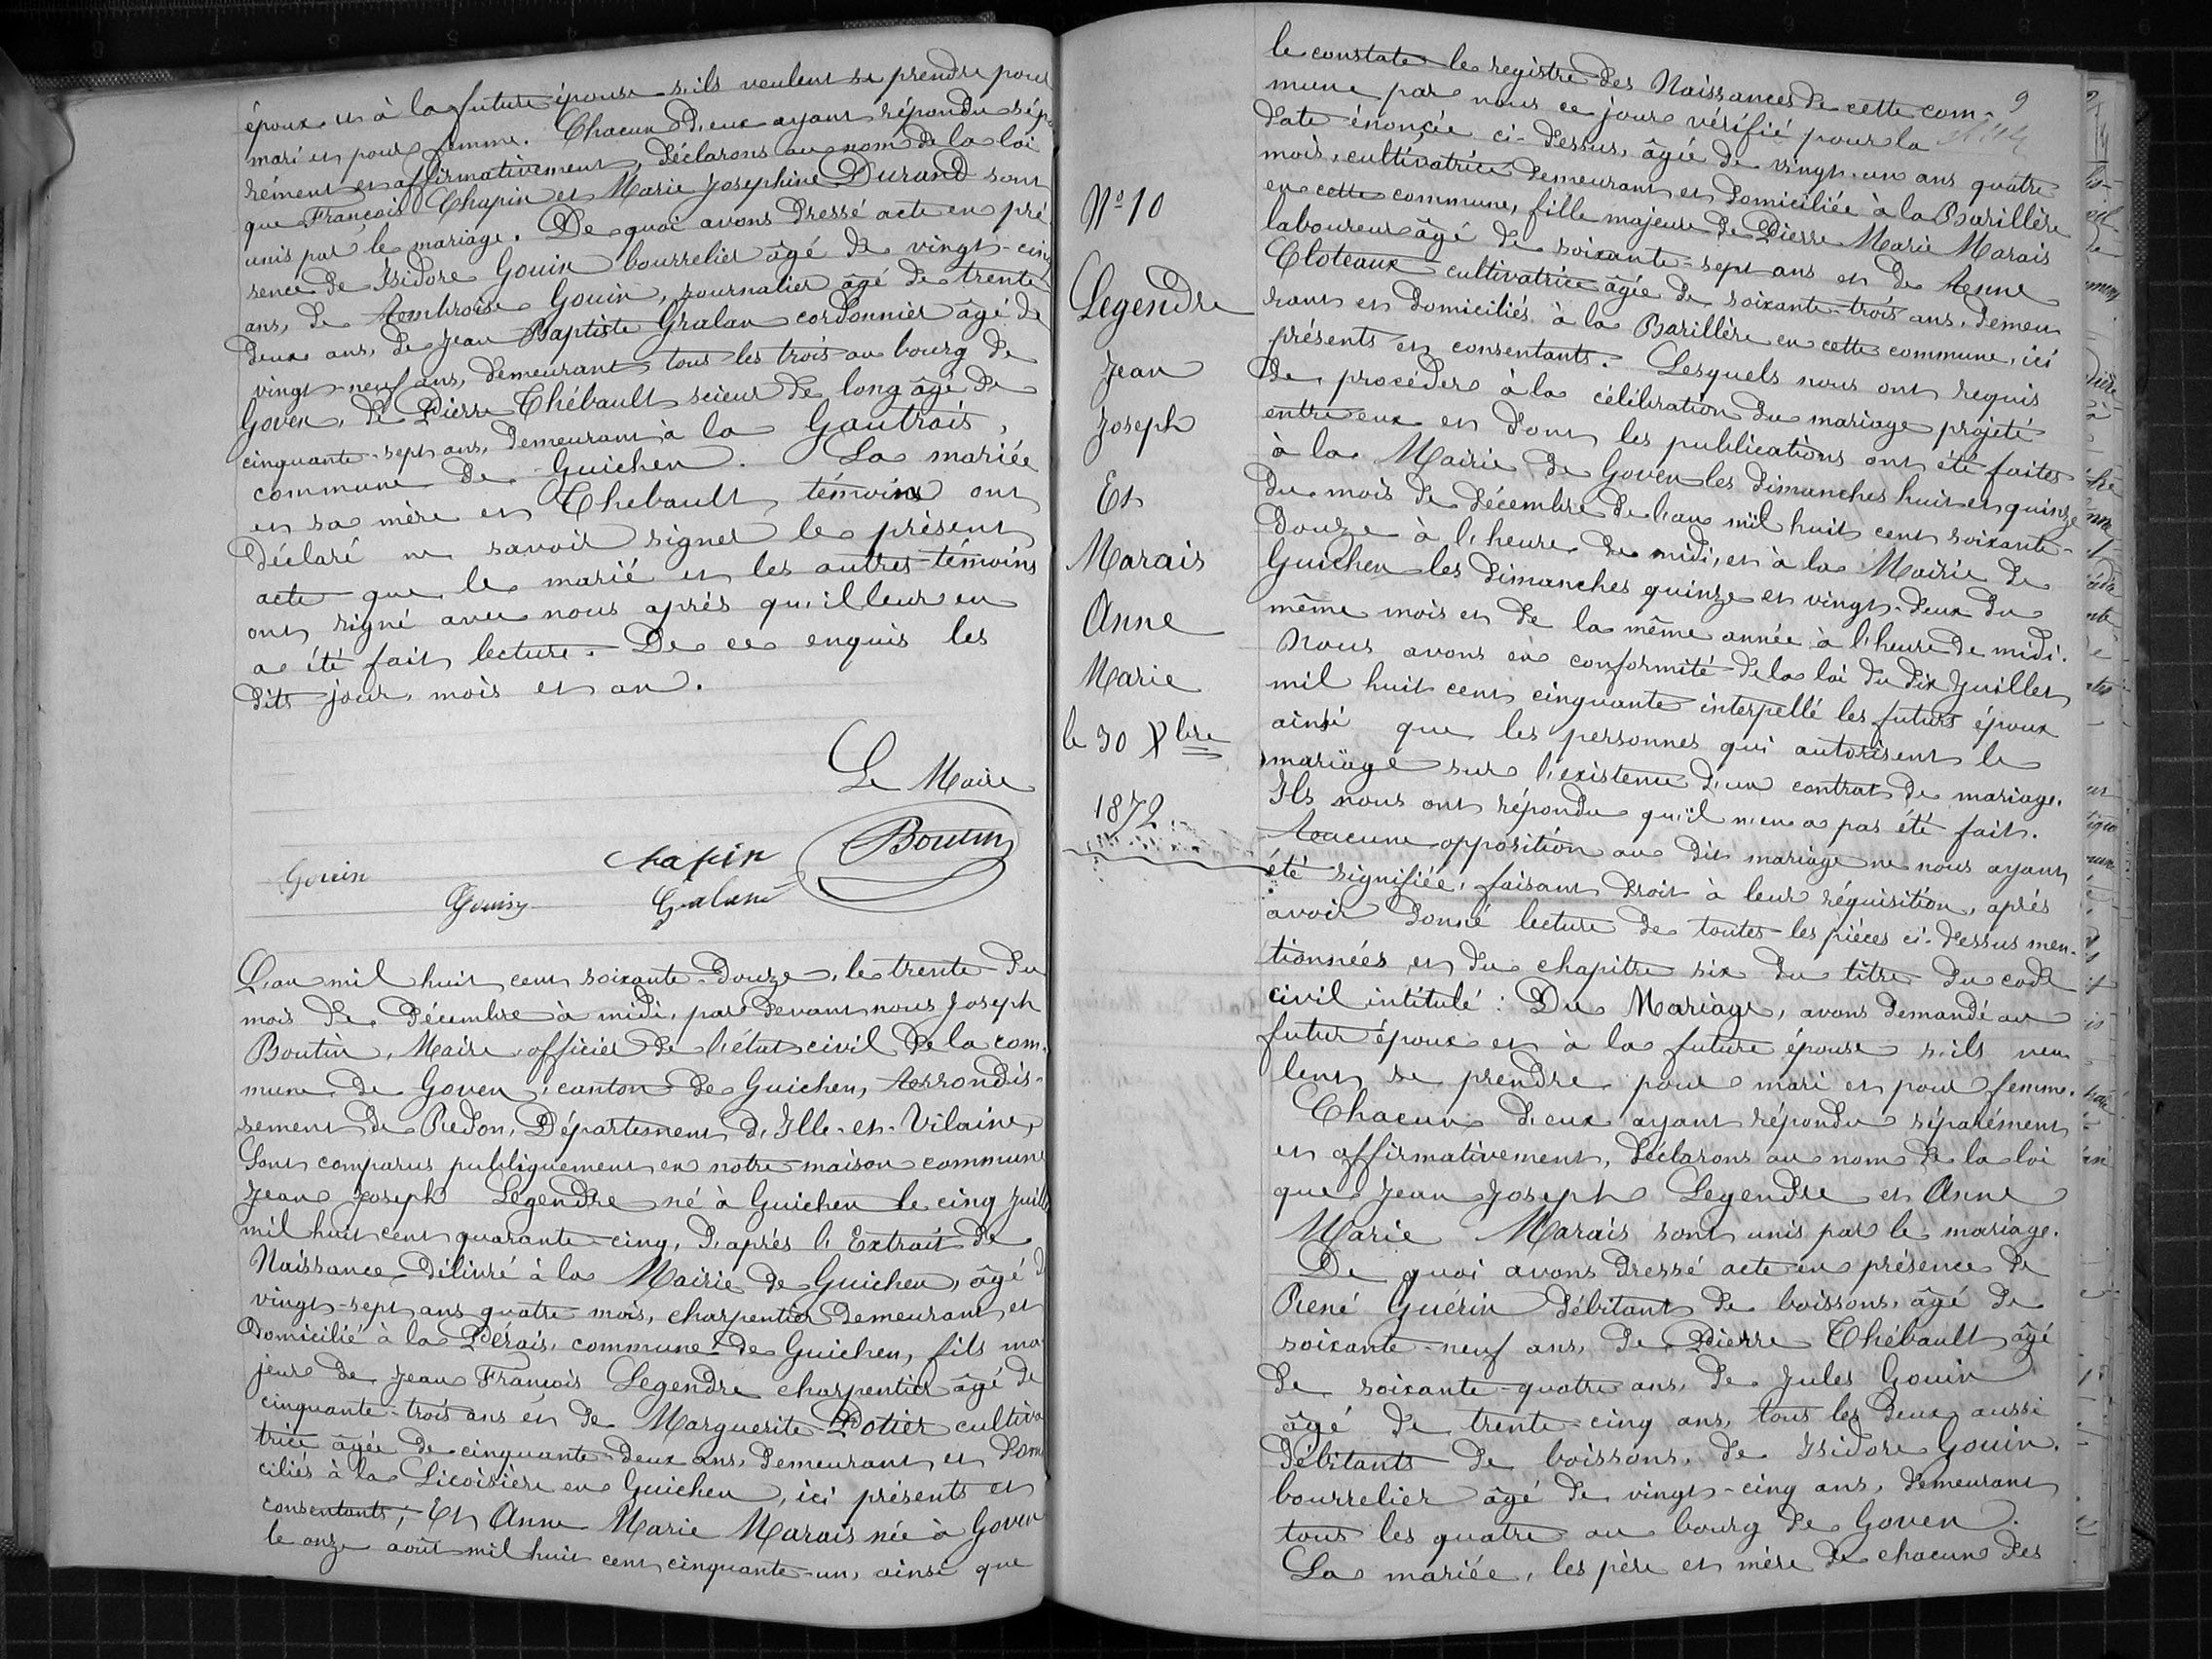 époux et à la future épouse s'ils veulent se prendre pour
mari et pour femme. Chacun d'eux ayant répondu sépa
rément et affirmativement, déclarons au nom de la loi
que François Chapin et Marie Josephine Durand sont
unis par le mariage. De quoi avons dressé acte en pré
sence de Isidore Gouin bourrelier âgé de vingt-cinq
ans, de Ambroise Gouin, journalier âgé de trente
deux ans, de Jean Baptiste Gralan cordonnier âgé de
vingt-neuf ans, demeurant tous les trois au bourg de
Goven, de Pierre Thébault scieur de long âgé de
cinquante-sept ans, demeurant à la Gautrais,
commune de Guichen. La mariée
et sa mère et Thebault, témoins ont
déclaré ne savoir signer le présent
acte que le marié et les autres témoins
ont signé avec nous après qu'il leur en
a été fait lecture. De ce enquis les
dits jour, mois et an.
Le Maire
Boutin
Chapin
Gouin
Gouin
Gralan
L'an mil huit cent soixante-douze, le trente du
mois de Décembre à midi, par devant nous Joseph
Boutin, Maire, officier de l'état civil de la com-
mune de Goven, canton de Guichen, Arrondis-
sement de Redon, Département d'Ille-et-Vilaine,
Sont comparus publiquement en notre maison commune
Jean Joseph Legendre né à Guichen le cinq Juillet
mil huit cent quarante-cinq, d'après l'Extrait de
Naissance délivré à la Mairie de Guichen, âgé de
vingt-sept ans quatre mois, charpentier demeurant et
domicilié à la Pérais, commune de Guichen, fils ma
jeur de Jean François Legendre charpentier âgé de
cinquante-trois ans et de Marguerite Potier cultiva
trice âgée de cinquante-deux ans, demeurant et domi
ciliés à la Licoisière en Guichen, ici présents et
consentants; Et Anne Marie Marais née à Goven
le onze août mil huit cent cinquante-un, ainsi que
Nº 10
Legendre
Jean
Joseph
Et
Marais
Anne
Marie
le 30 Xbre
1872
9
le constate le registre des Naissances de cette com-
mune par nous ce jour vérifié pour la
date énoncée ci-dessus, âgée de vingt-un ans quatre
mois, cultivatrice demeurant et domiciliée à la Barillère
en cette commune, fille majeure de Pierre Marie Marais
laboureur âgé de soixante-sept ans et de Anne
Cloteaux cultivatrice âgée de soixante-trois ans, demeu
rant et domiciliés à la Barillère en cette commune, ici
présents et consentants. Lesquels nous ont requis
de procéder à la célébration du mariage projeté
entre eux et dont les publications ont été faites
à la Mairie de Goven les dimanches huit et quinze
du mois de décembre de l'an mil huit cent soixante-
douze à l'heure de midi, et à la Mairie de
Guichen les dimanches quinze et vingt-deux du
même mois et de la même année à l'heure de midi.
Nous avons en conformité de la loi du dix Juillet
mil huit cent cinquante interpellé les futurs époux
ainsi que les personnes qui autorisent le
mariage sur l'existence d'un contrat de mariage.
Ils nous ont répondu qu'il n'en a pas été fait.
Aucune opposition au dit mariage ne nous ayant
été signifiée, faisant droit à leur réquisition, après
avoir donné lecture de toutes les pièces ci-dessus men-
tionnées et du chapitre six du titre du code
civil intitulé: Du Mariage, avons demandé au
futur époux et à la future épouse s'ils veu
lent se prendre pour mari et pour femme.
Chacun d'eux ayant répondu séparément
et affirmativement, déclarons au nom de la loi
que Jean Joseph Legendre et Anne
Marie Marais sont unis par le mariage.
De quoi avons dressé acte en présence de
René Guérin débitant de boissons, âgé de
soixante-neuf ans, de Pierre Thébault âgé
de soixante-quatre ans, de Jules Gouin
âgé de trente-cinq ans, tous les deux aussi
débitants de boissons, de Isidore Gouin.
bourrelier âgé de vingt-cinq ans, demeurant
tous les quatre au bourg de Goven.
La mariée, les père et mère de chacun des